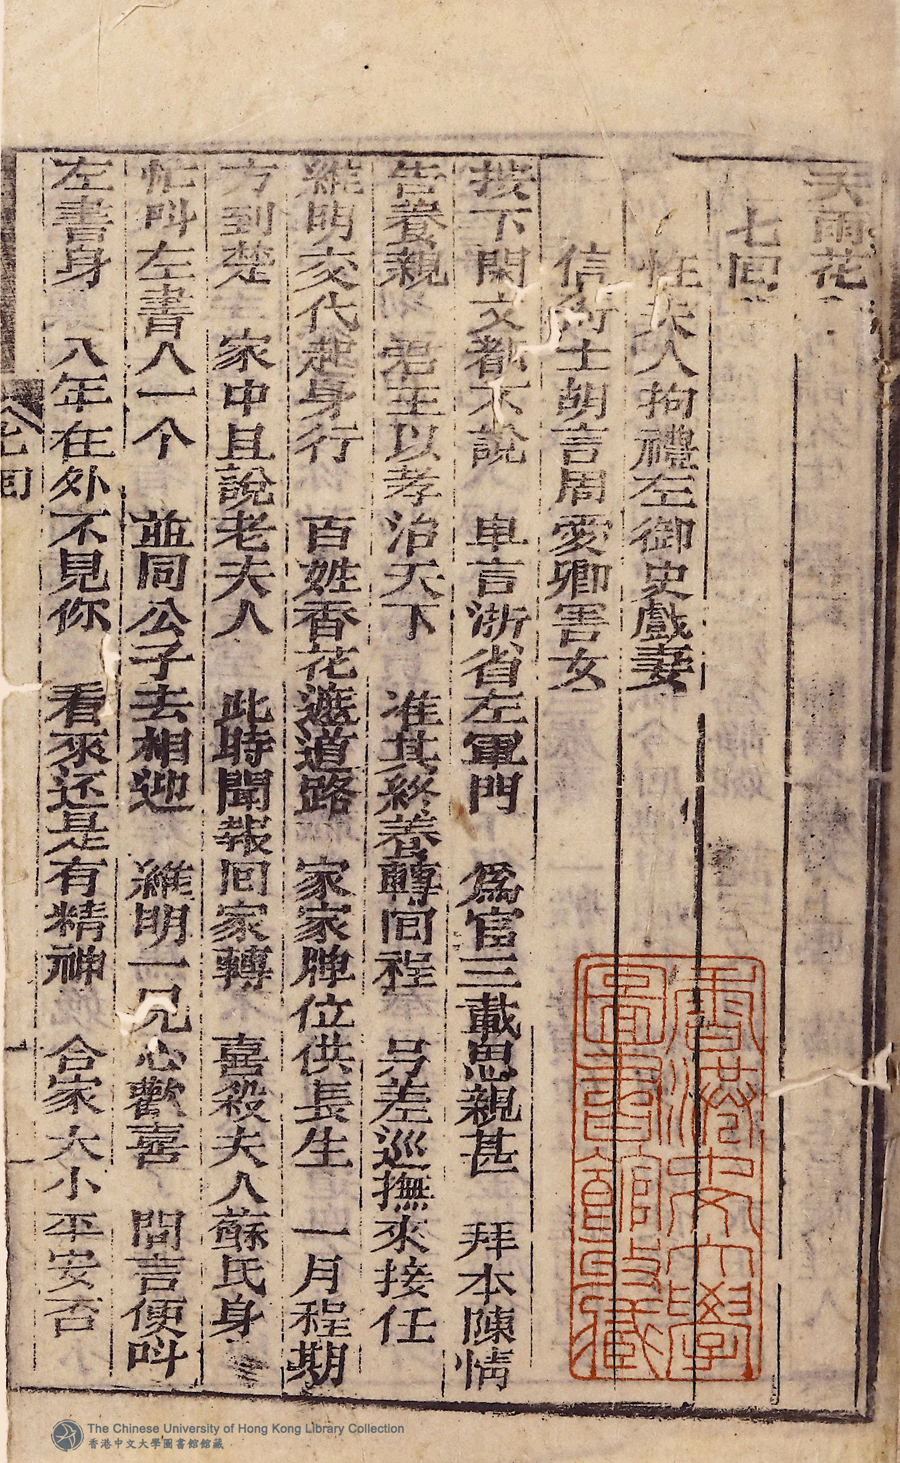 天雨花
七囬
性夫人拘禮左御史戲妻
信術士胡言周愛卿害女
按下閑文都不說 単言浙省左軍門 爲官三載思親甚 拜本陳情
告養親 君主以孝治天下 准其終養轉囬程 另差巡撫來接任
維明交代起身行 百姓香花遮道路 家家牌位供長生 一月程期
方到楚 家中且說老夫人 此時聞報囬家轉 喜殺夫人蘇氏身
忙呌左書人一个 並同公子去相迎 維明一見心歡喜 問言便呌
左書身 八年在外不見你 看來还是有精神 合家大小平安否
七囬
香港中文大學圖書館藏
The Chinese University of Hong Kong Library Collection
香港中文大學圖書館館藏